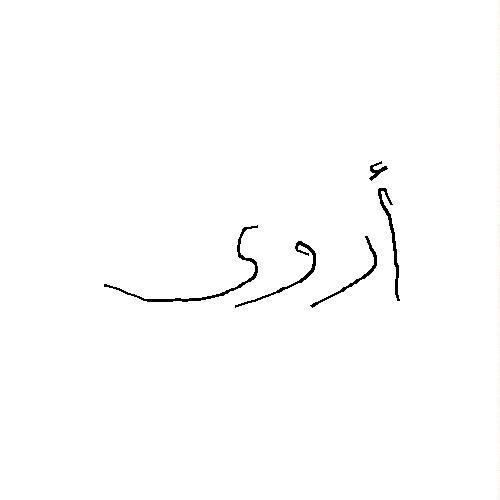 أروى